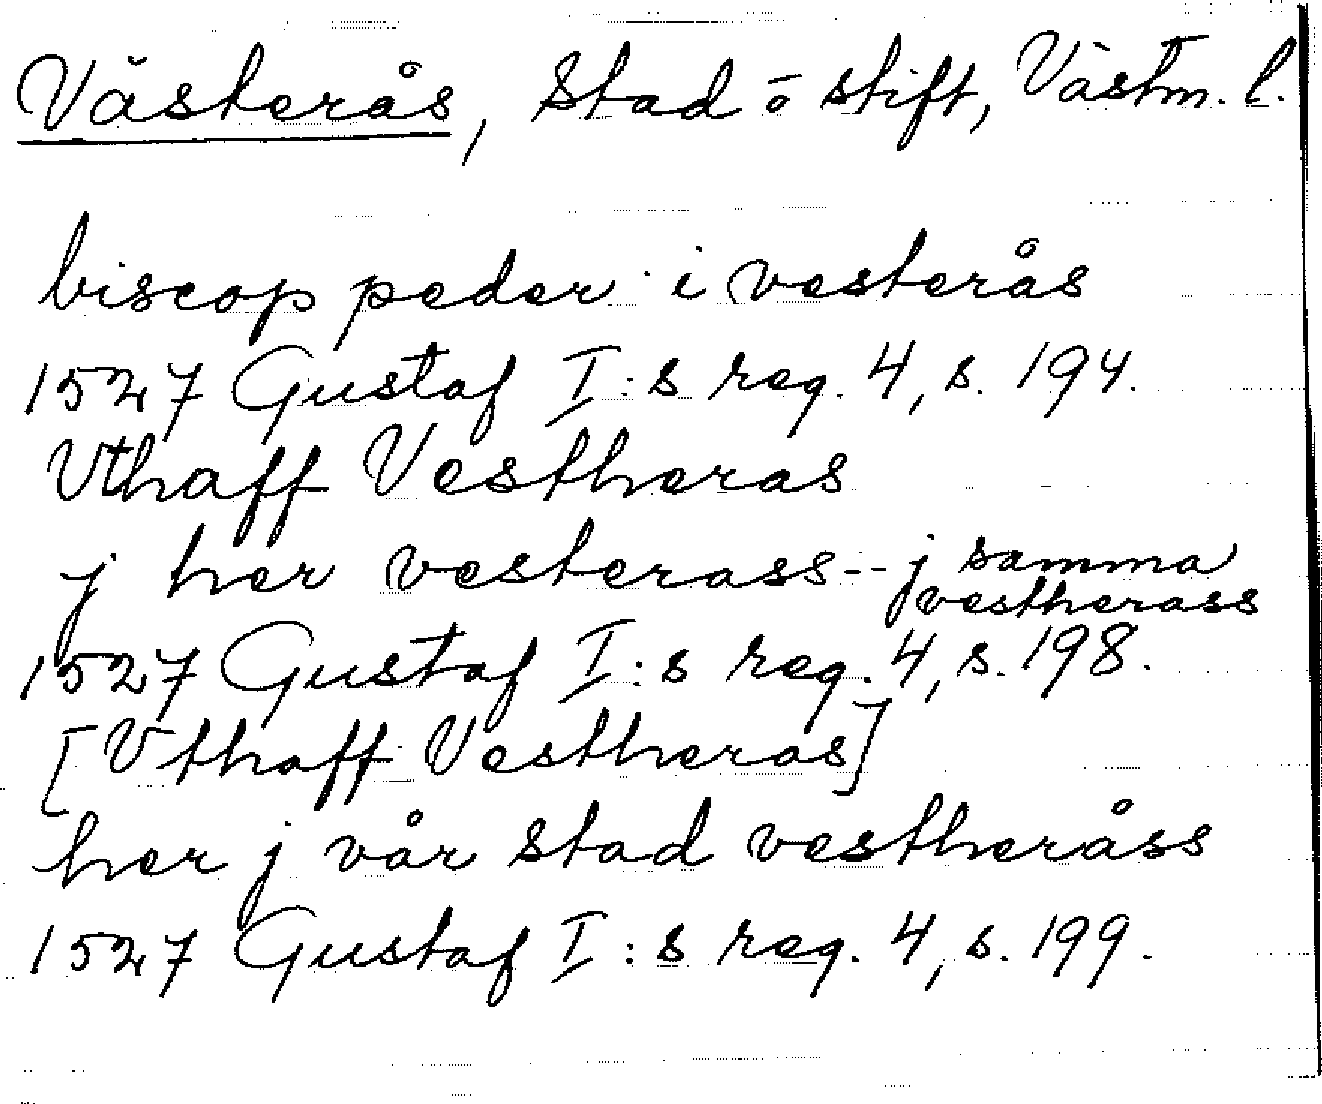 Västerås, Stad o stift, Västm. l.
biscop peder i vesterås
1527 Gustaf I:s reg. 4, s. 194.
Vthaff Vestheras
j her vesterass -- j samma vestherass
1527 Gustaf I:s reg. 4, s. 198.
[Vthaff Vestheras]
her j vår stad vestheråss
1527 Gustaf I:s reg. 4, s. 199.